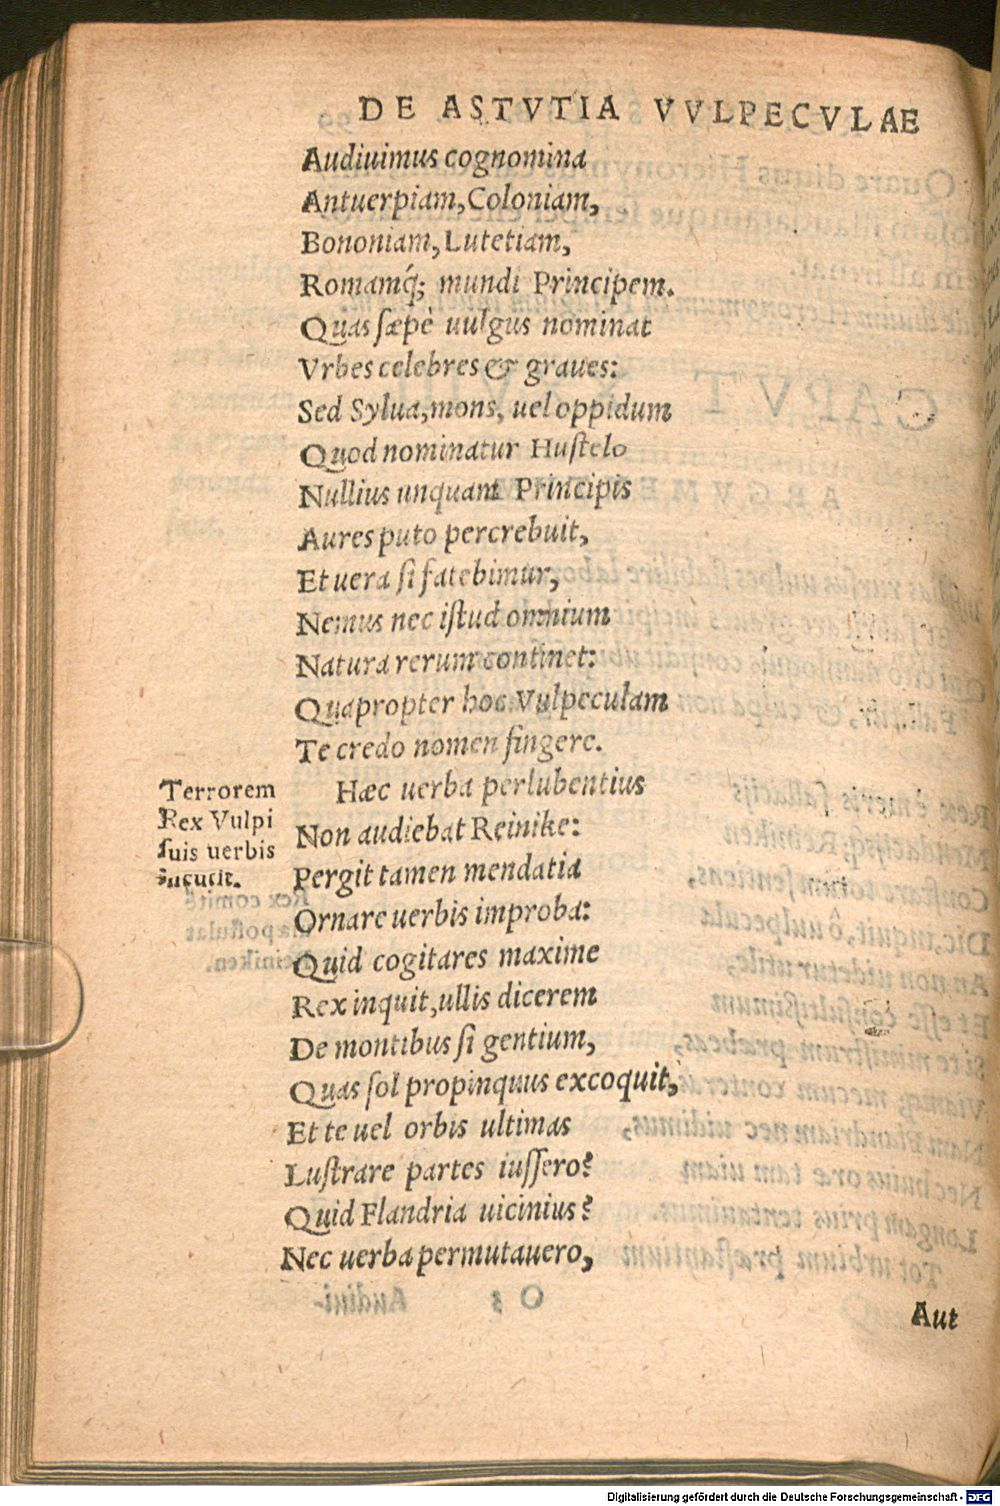 DE ASTVTIA VVLPECVLAE
Audiuimus cognomina
Antuerpiam, Coloniam,
Bononiam, Lutetiam,
Romamq́; mundi Principem.
Quas sæpè uulgus nominat
Vrbes celebres & graues:
Sed Sylua, mons, uel oppidum
Quod nominatur Hustelo
Nullius unquam Principis
Aures puto percrebuit,
Et uera si fatebimur,
Nemus nec istud omnium
Natura rerum continet:
Quapropter hoc Vulpeculam
Te credo nomen fingere.
Hæc uerba perlubentius
Non audiebat Reinike:
Pergit tamen mendatia
Ornare uerbis improba:
Quid cogitares maxime
Rex inquit, ullis dicerem
De montibus si gentium,
Quas sol propinquus excoquit,
Et te uel orbis ultimas
Lustrare partes iussero?
Quid Flandria uicinius?
Nec uerba permutauero,
Aut
Terrorem
Rex Vulpi
suis uerbis
incutit.
Digitalisierung gefördert durch die Deutsche Forschungsgemeinschaft - DFG